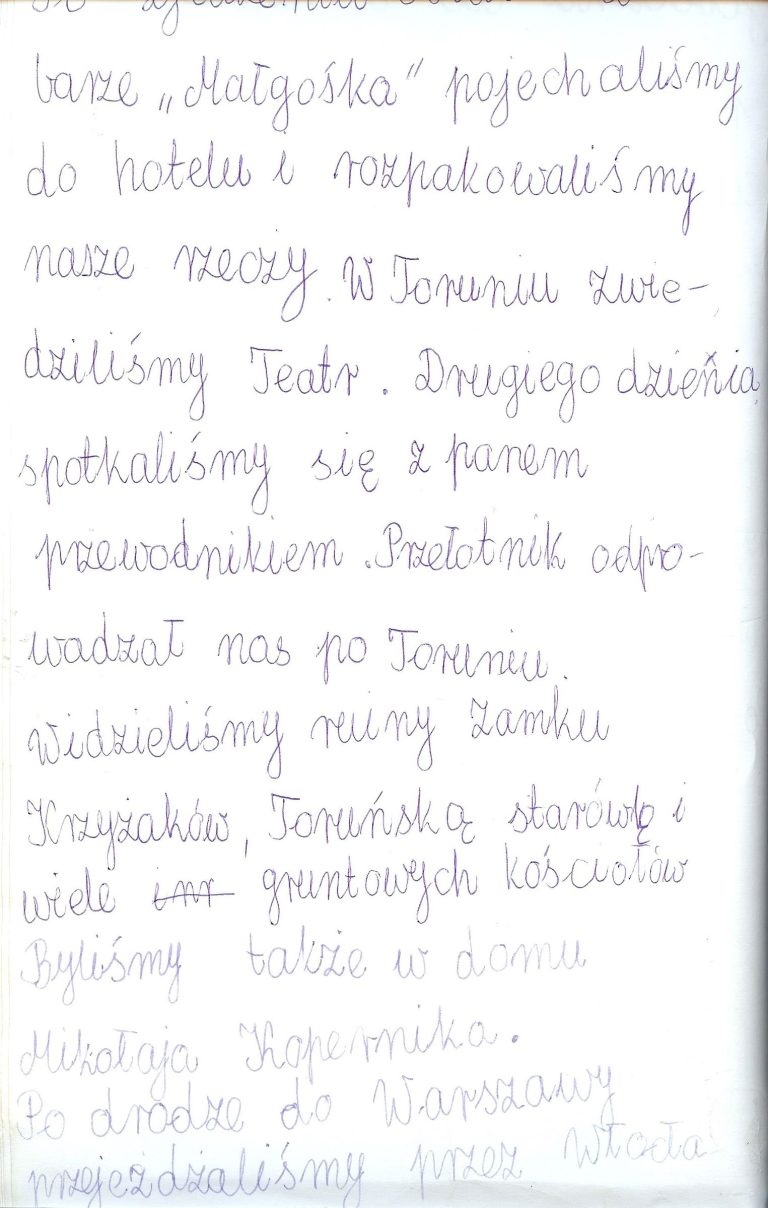 barze „Małgośka" pojechaliśmy
do hotelu i rozpakowaliśmy
nasze rzeczy. W Toruniu zwie-
dziliśmy Teatr. Drugiego dzieńia
spotkaliśmy się z panem
przewodnikiem. Przełotnik odpro-
wadzał nas po Toruniu.
Widzieliśmy ruiny zamku
Krzyżaków, Toruńską starówkę i
wiele gruntowych kościołów
Byliśmy także w domu
Mikołaja Kopernika.
Po drodze do Warszawy
przejeżdżaliśmy przez Włocła